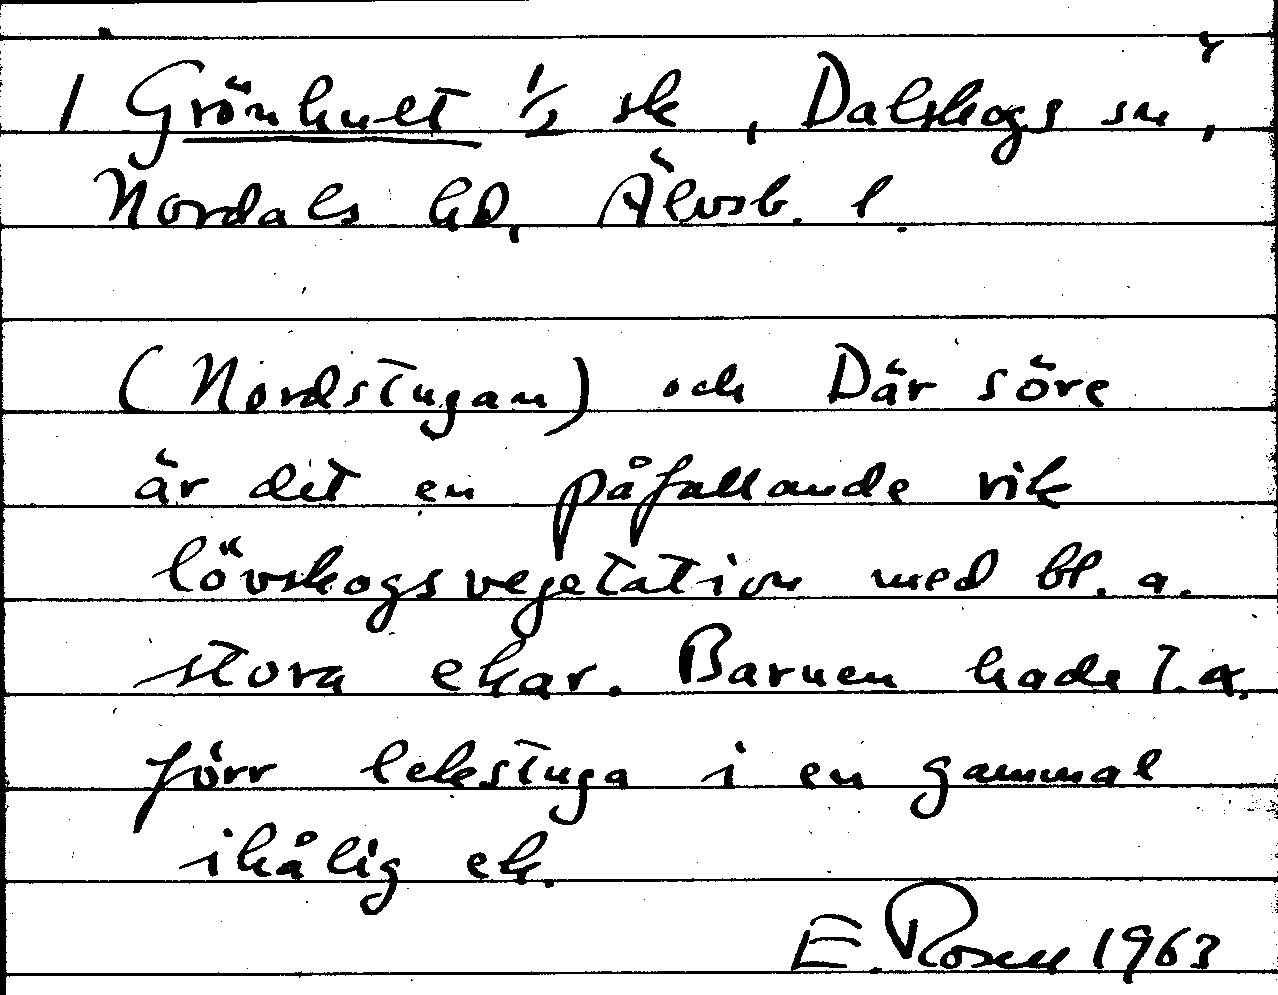 1 Grönhult 1/2 sk, Dalskogs sn,
Nordals hd, Älvsb. l.
(Nordstugan) och Där söre
är det en påfallande rik
lövskogsvegetation med bl. a.
stora ekar. Barnen hade t. a.
förr lekstuga i en gammal
ihålig ek.
E. Rosell 1963